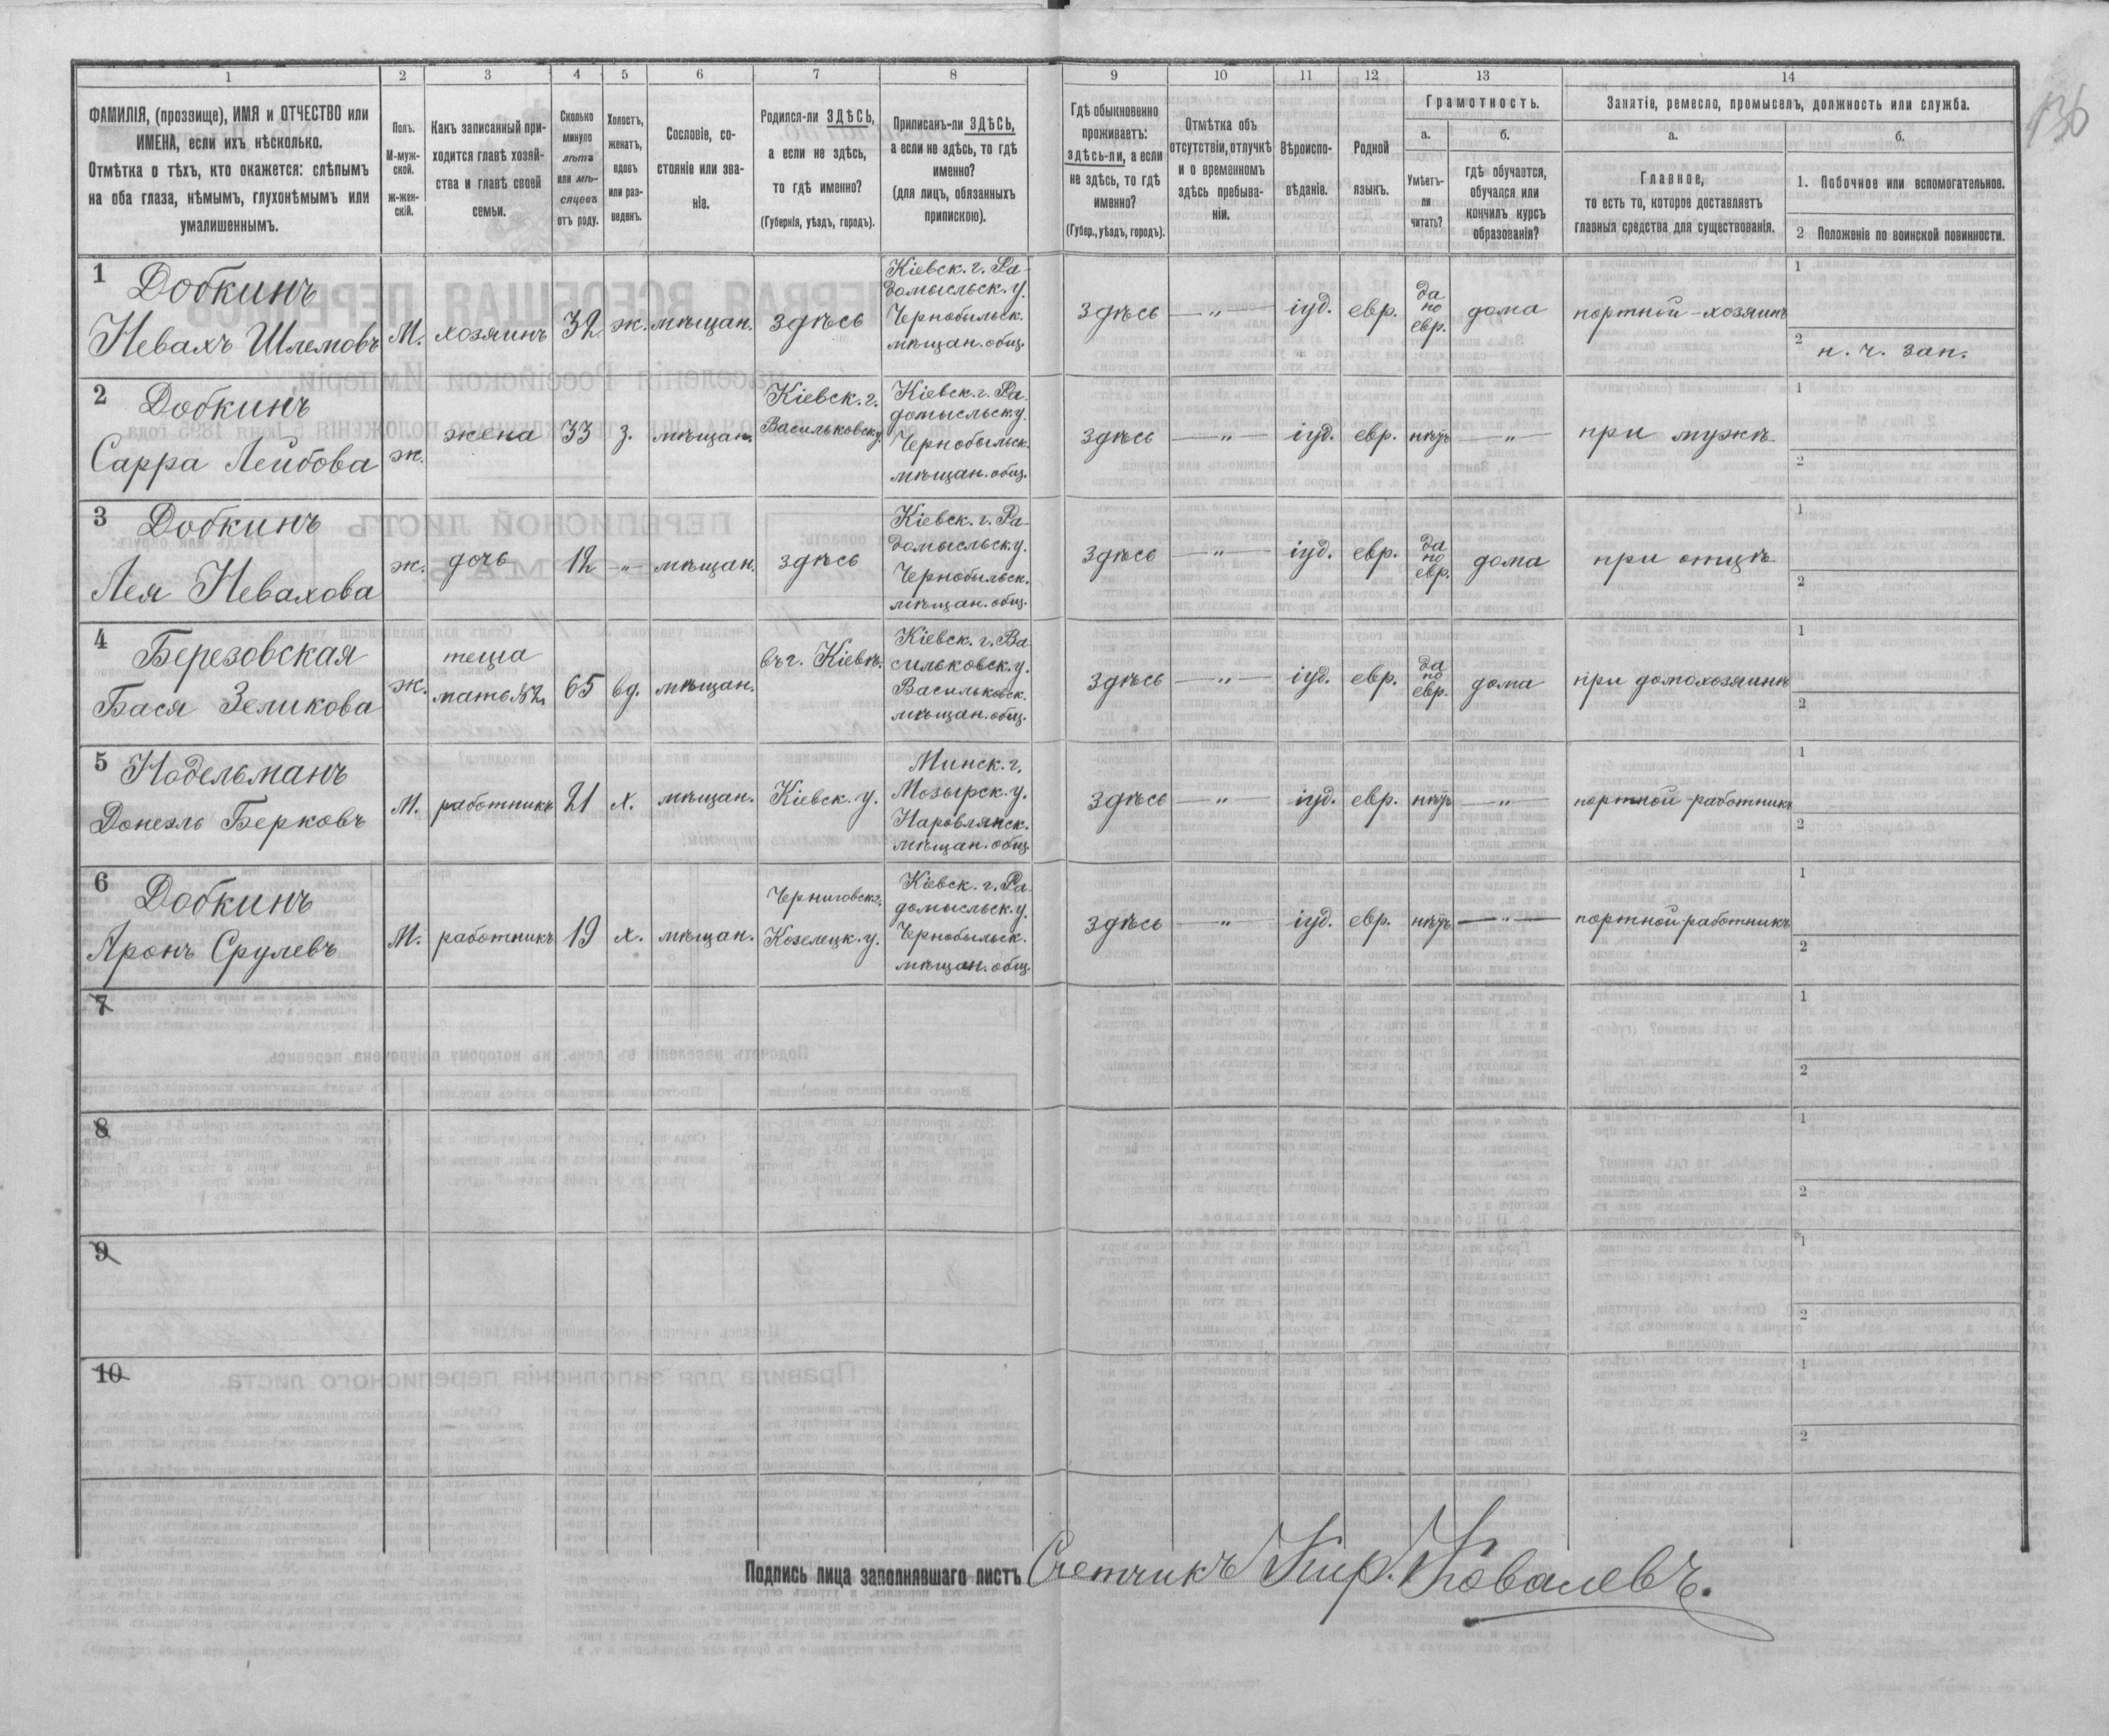 136
1 2 3 4 5 6 7 8 9 10 11 12 13 14
ФАМИЛІЯ, (прозвище), ИМЯ и ОТЧЕСТВО или
ИМЕНА, если ихъ нѣсколько.
Отмѣтка о тѣхъ, кто окажется: слѣпымъ
на оба глаза, нѣмымъ, глухонѣмымъ или
умалишеннымъ.
Полъ.
М-муж-
ской.
Ж-жен-
скій.
Какъ записанный при-
ходится главѣ хозяй-
ства и главѣ своей
семьи.
Сколько
минуло
лѣтъ
или мѣ-
сяцевъ
отъ роду.
Холостъ,
женатъ,
вдовъ
или раз-
веденъ.
Сословіе, со-
стояніе или зва-
ніе.
Родился-ли ЗДѢСЬ,
а если не здѣсь,
то гдѣ именно?
(Губернія, уѣздъ, городъ).
Приписанъ-ли ЗДѢСЬ,
а если не здѣсь, то гдѣ
именно?
(для лицъ, обязанныхъ
припискою).
Гдѣ обыкновенно
проживаетъ:
здѣсь-ли, а если
не здѣсь, то гдѣ
именно?
(Губер., уѣздъ, городъ).
Отмѣтка объ
отсутствіи, отлучкѣ
и о временномъ
здѣсь пребыва-
ніи.
Вѣроиспо-
вѣданіе.
Родной
языкъ.
Грамотность.
а.
Умѣетъ-
ли
читать?
б.
гдѣ обучается,
обучался или
кончилъ курсъ
образованія?
Занятіе, ремесло, промыселъ, должность или служба.
а.
Главное,
то есть то, которое доставляетъ
главныя средства для существованія.
б.
1. Побочное или вспомогательное.
2 Положеніе по воинской повинности.
1
Добкинъ
Невахъ Шлемовъ
М.
хозяинъ
32
ж.
мѣщан.
здѣсь
Кіевск. г. Ра-
домысльск. у.
Чернобыльск.
мѣщан. общ.
здѣсь
— „ —
іуд.
евр.
да
по
евр.
дома
портной-хозяинъ
1
2
н. ч. зап.
2
Добкинъ
Сарра Лейбова
ж.
жена
33
з.
мѣщан.
Кіевск. г.
Васильковск. у.
Кіевск. г. Ра-
домысльск. у.
Чернобыльск.
мѣщан. общ.
здѣсь
— „ —
іуд.
евр.
нѣтъ
— „ —
при мужѣ
1
2
3
Добкинъ
Лея Невахова
ж.
дочь
12
— „ —
мѣщан.
здѣсь
Кіевск. г. Ра-
домысльск. у.
Чернобыльск.
мѣщан. общ.
здѣсь
— „ —
іуд.
евр.
да
по
евр.
дома
при отцѣ
1
2
4
Березовская
Бася Зеликова
ж.
теща
мать №2
65
вд.
мѣщан.
въ г. Кіевѣ.
Кіевск. г. Ва
сильковск. у.
Васильковск.
мѣщан. общ.
здѣсь
— „ —
іуд.
евр.
да
по
евр.
дома
при домохозяинѣ
1
2
5
Нодельманъ
Донеэль Берковъ
М.
работникъ
21
х.
мѣщан.
Кіевск. у.
Минск. г.
Мозырск. у.
Наровлянск.
мѣщан. общ.
здѣсь
— „ —
іуд.
евр.
нѣтъ
— „ —
портной работникъ
1
2
6
Добкинъ
Аронъ Срулевъ
М.
работникъ
19
х.
мѣщан.
Черниговск. г.
Козелецк. у.
Кіевск. г. Ра-
домысльск. у.
Чернобыльск.
мѣщан. общ.
здѣсь
— „ —
іуд.
евр.
нѣтъ
— „ —
портной работникъ
1
2
7
1
2
8
1
2
9
1
2
10
1
2
Подпись лица заполнявшаго листъ Счетчикъ Кир. Ковалевъ.